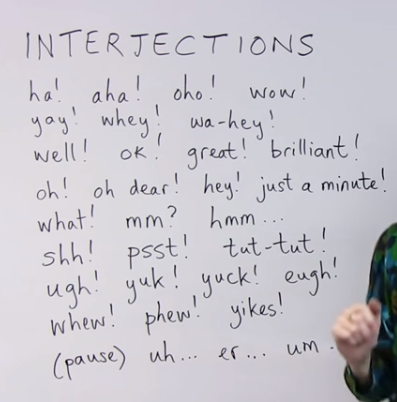 INTERJECTIONS
ha! aha! oho! wow!
yay! whey! wa-hey!
well! ok! great! brilliant!
oh! oh dear! hey! just a minute!
what! mm? hmm...
shh! psst! tut-tut!
ugh! yuk! yuck! eugh!
whew! phew! yikes!
(pause) uh... er... um.